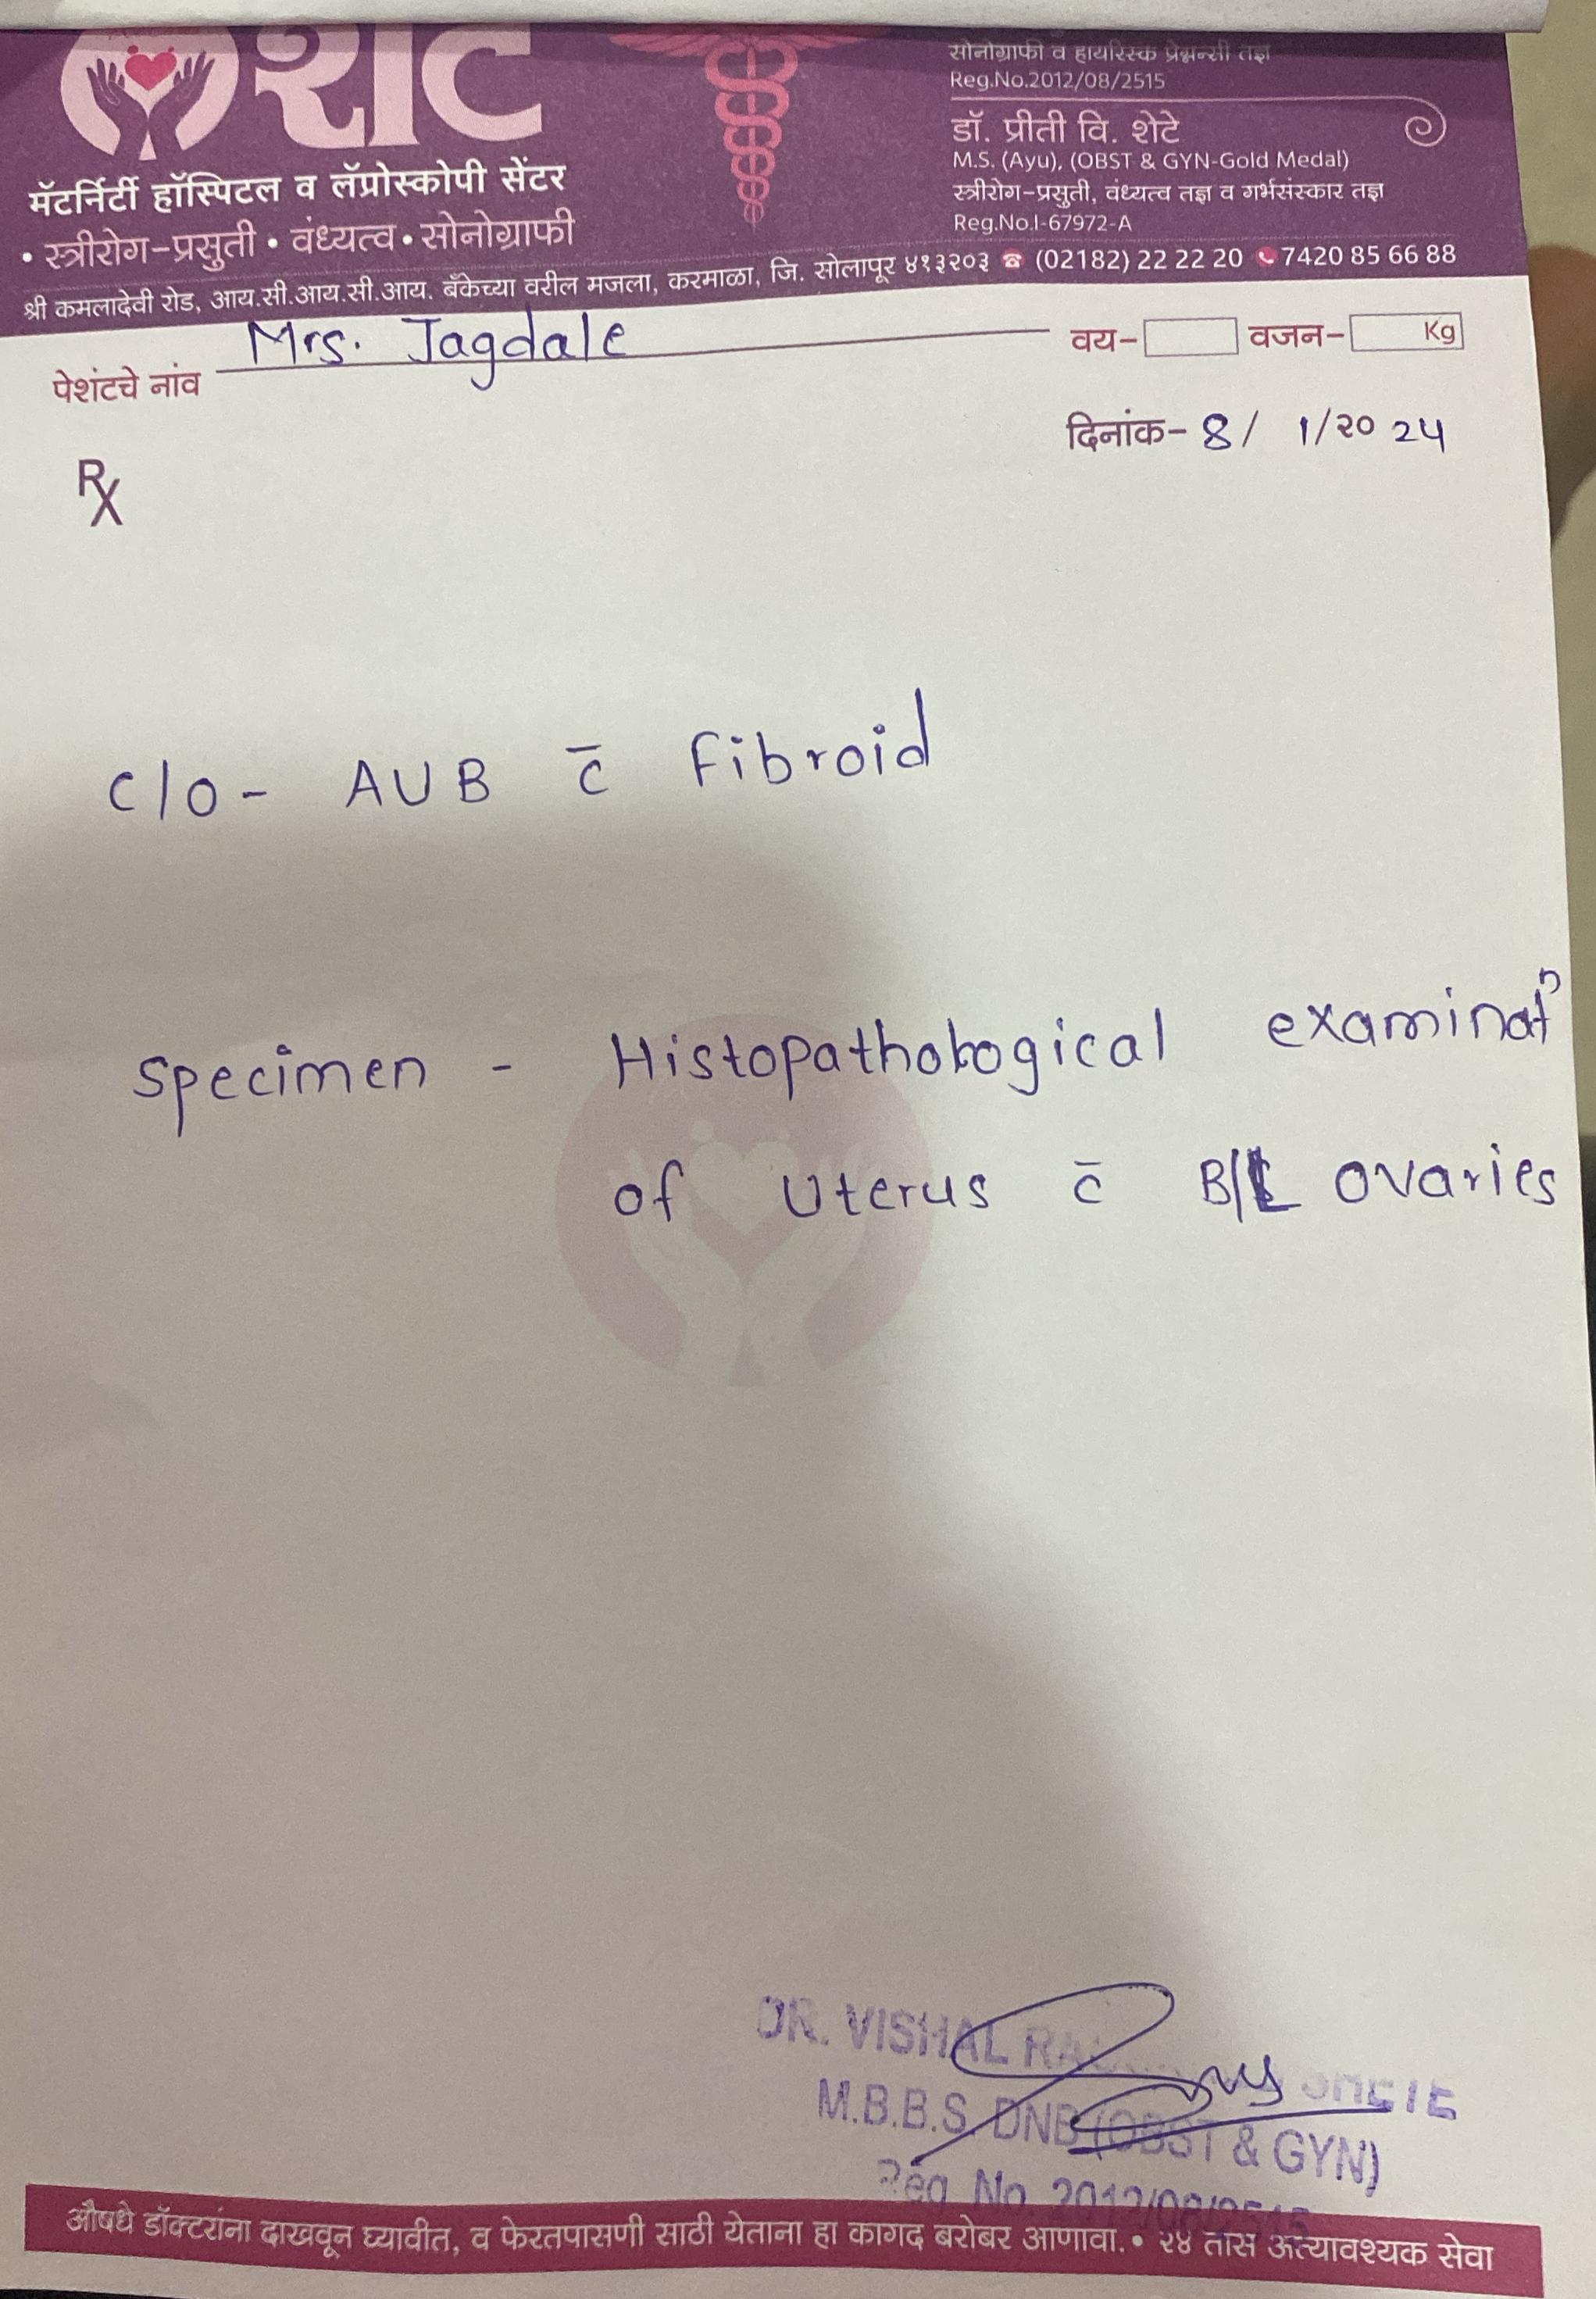 सोनोग्राफी व हायरिस्क प्रेग्नन्सी तज्ञ
Reg.No.2012/08/2515
डॉ. प्रीती वि. शेटे
M.S. (Ayu), (OBST & GYN-Gold Medal)
स्त्रीरोग-प्रसुती, वंध्यत्व तज्ञ व गर्भसंस्कार तज्ञ
Reg.No.I-67972-A
मॅटर्निटी हॉस्पिटल व लॅप्रोस्कोपी सेंटर
• स्त्रीरोग-प्रसुती • वंध्यत्व • सोनोग्राफी
श्री कमलादेवी रोड, आय.सी.आय.सी.आय. बँकेच्या वरील मजला, करमाळा, जि. सोलापूर ४१३२०३ ☎ (02182) 22 22 20 📞 7420 85 66 88
पेशंटचे नांव Mrs. Jagdale वय- वजन- Kg
दिनांक- 8 / 1/२० 24
Rx
C/O - AUB c̄ Fibroid
Specimen - Histopathological examinatⁿ
of Uterus c̄ B/L ovaries
DR. VISHAL SHETE
M.B.B.S. DNB (OBST & GYN)
Reg No. 2012/08/2515
औषधे डॉक्टरांना दाखवून घ्यावीत, व फेरतपासणी साठी येताना हा कागद बरोबर आणावा. • २४ तास अत्यावश्यक सेवा